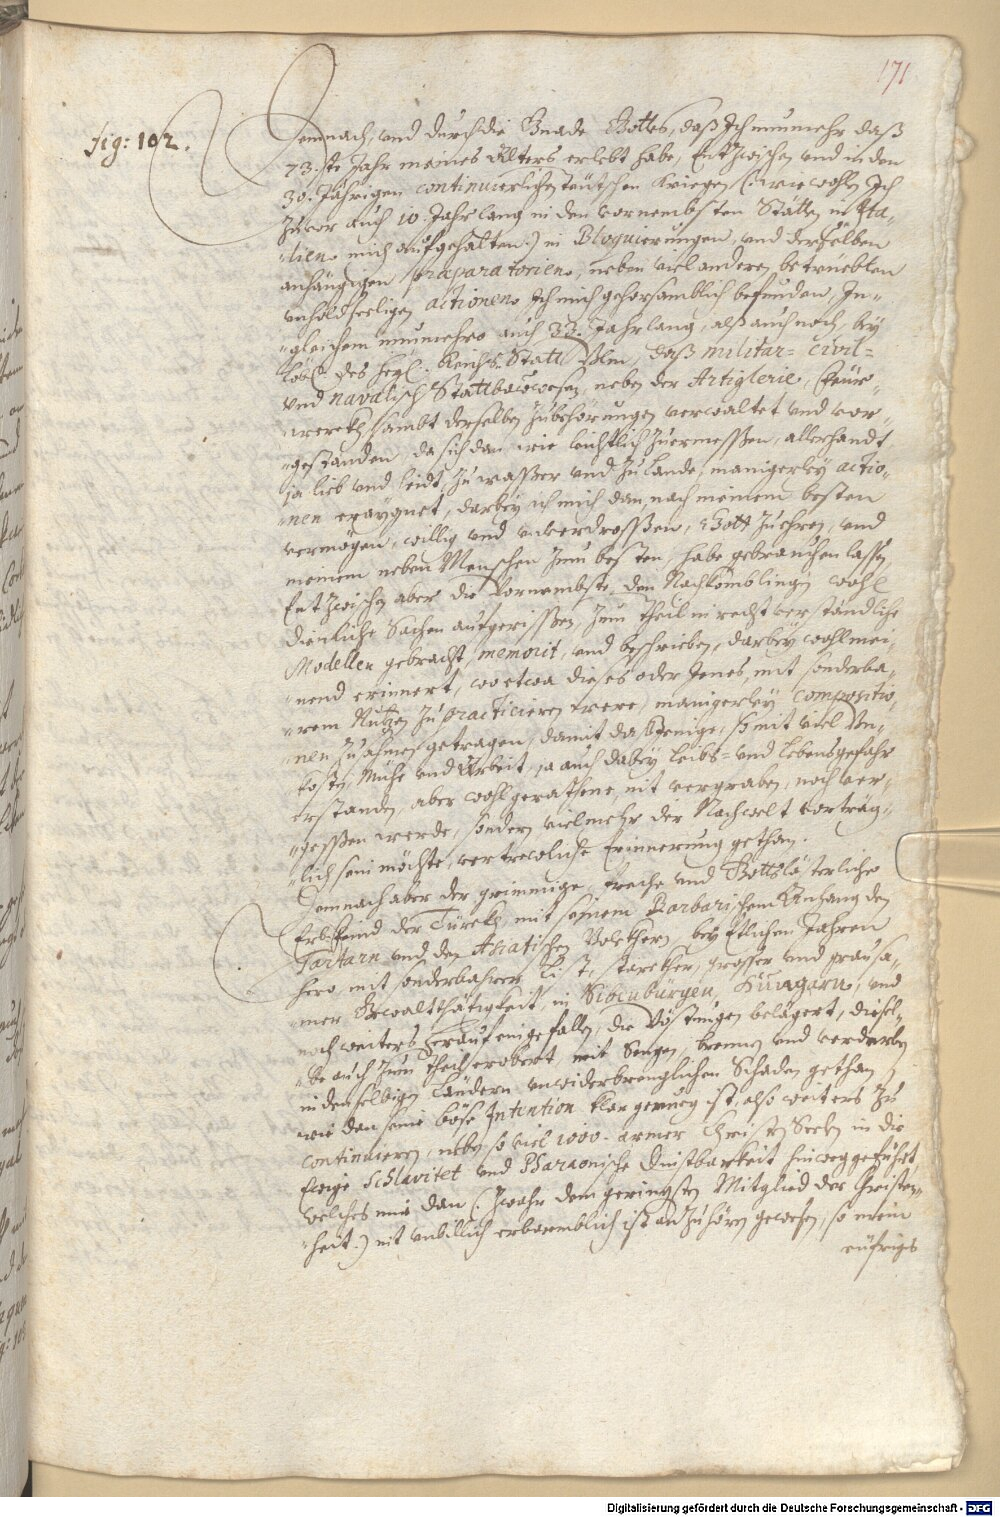 171
fig: 102.
Demnach, und durch die Gnade Gottes, daß Ich nunmehr daß
73.ste Jahr meines Alters erlebt habe, Entzwischen und in den
30. Jährigen continuierlichen teütschen Kriegen (: wie wohlen Ich
zuvor auch 10. Jahr lang in den vornembsten Stätten in Ita-
lien mich aufgehalten:) in Bloquierungen, und derselben
anhängigen praeparatorien, neben viel anderen betrüebten
unholdseeligen actionen Ich mich gehorsamblich befunden, In-
gleichem nunmehro auch 33. Jahr lang, alß auch noch, bey
löbl. des heyl. Reichs Statt Ulm, daß militar= civil=
und navalisch Stattbauwesen, neben der Artiglerie, Feür-
werckh sambt derselben Zubehörungen verwaltet und vor-
gestanden, da sich dan wie leichtlich zuermessen, allerhandt
ja lieb und leidt, zu wasser und zu Lande, manigerley actio-
nen eraygnet, darbey ich mich dan nach meinem besten
vermögen, willig und unverdrossen, Gott zu ehren, und
meinem neben Menschen zum besten, habe gebrauchen lassen,
Entzwischen aber die vornembste, den Nachkömblingen wohl
dienliche Sachen aufgerissen, zum theil in recht verständliche
Modellen gebracht, memorirt, und beschrieben, darbey wohlmei-
nend erinnert, wo etwa dieses oder Jenes, mit sonderba-
rem Nutzen zu practicieren were, manigerley compositio-
nen zusamen getragen, damit dasJenige, so mit viel Un-
kosten, Mühe und Arbeit, ja auch dabey Leibs= und Lebensgefahr
erstanden, aber wohl gerathene, nit vergraben, noch ver-
gessen werde, sondern vielmehr der Nachwelt vorträg-
lich sein möchte, vertrewliche Erinnerung gethan.
Demnach aber der grimmige, freche und Gottslästerliche
Erbfeind der Türckh, mit seinem Barbarischem Anhang den
Tartarn und den Asiatischen Völckhern, bey etlichen Jahren
hero, mit sonderbahrer List, starckher, grosser und grausa-
mer Gewaltthätigkeit, in Sibenbürgen, Hungarn, und
noch weiters herauf eingefallen, die Vöstungen belägert, diesel-
be auch zum theil erobert, mit Sengen, brennen und verderben
in denselbigen Ländern unwiderbringlichen Schaden gethan,
wie dan seine böse Intention klar genueg ist, also weiters zu
continuieren, neben so viel 1000. armer Christen Seelen in die
Ewige Schlavitet und Pharaonische Dinstbarkeit hinweg geführt,
welches mir dan (: zwahr dem geringsten Mitglied der Christen-
heit:) nit unbillich erbärmblich ist anzuhören gewesen, so mein
eüfrigs
Digitalisierung gefördert durch die Deutsche Forschungsgemeinschaft - DFG